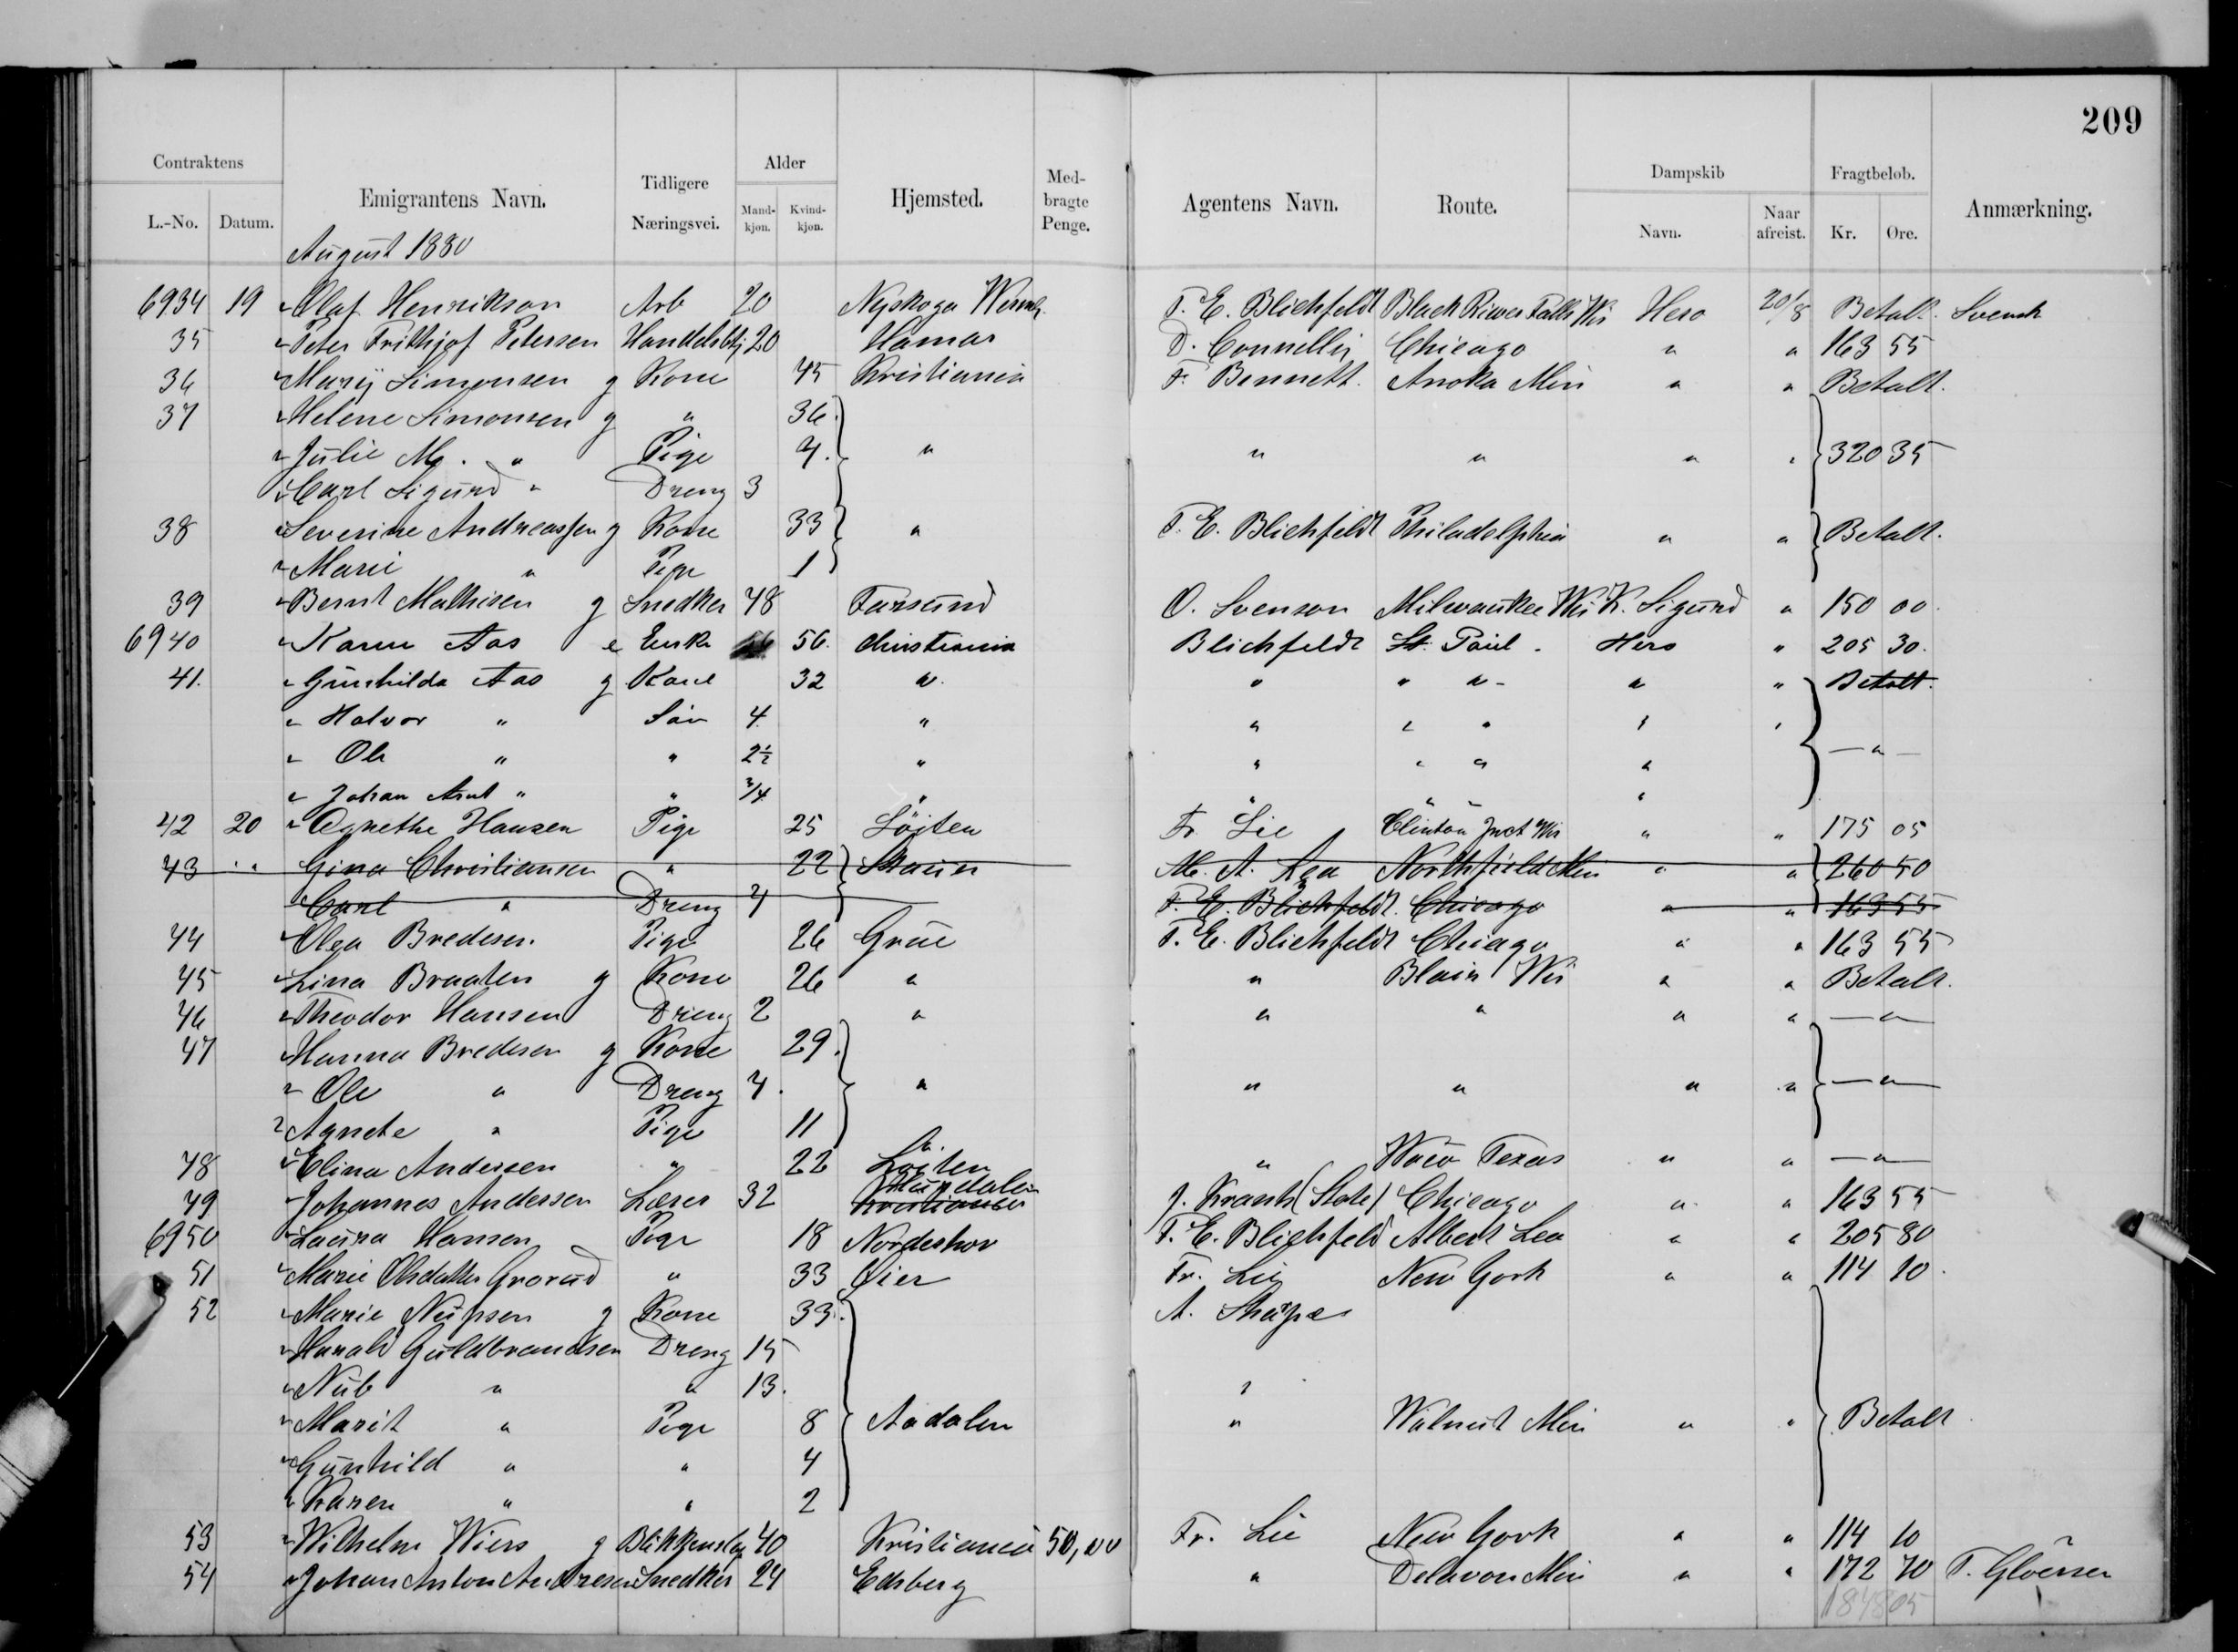 209
Contraktens Emigrantens Navn. Tidligere Næringsvei. Alder Hjemsted. Med-bragte Penge. Agentens Navn. Route. Dampskib Fragtbeløb. Anmærkning.
L.-No. Datum. Mand-kjøn. Kvind-kjøn. Navn. Naar afreist. Kr. Øre.
August 1880
6934 19 Olaf Henrikson Arb 20 Nyskoga T. E. Blichfeldt Black River Falls Wis Hero 20/8 Betalt. Svensk
35 Peter Frithjof Petersen 20 Hamar D. Connelly Chicago " " 163 55
36 Mary Simonsen g Kone 45 Kristiania F. Bennett. Anoka Min " " Betalt.
37 Helene Simonsen g " 36.
" Julie M. " Pige 7. " " " " " 320 35
" Carl Sigurd " Dreng 3
38 Severine Andreassen g Kone 33 " T. E. Blichfeldt Philadelphia " " Betalt.
" Marie " Pige 1
39 Bernt Mathisen g Snedker 48 Farsund O. Svenson Milwaukee Wis K. Sigurd " 150 00
6940 Karen Aas e Enke 56. Christiania Blichfeldt St. Paul. Hero " 205 30.
41. Gunhilda Aas g Kone 32 " " " " " " Betalt.
" Halvor " Søn 4 " " " " " "
" Ole " " 2½ " " " " " — " —
" Johan Arnt " " ¾ " " " " "
42 20 Agnethe Hansen Pige 25 Löiten Fr. Lie Clinton Jnct Wis " " 175 05
43 " Gina Christiansen " 22 M. A. Northfield Min " " 260 50
Carl " Dreng 4 T. E. Blichfeldt. Chicago " " 163 55
44 Olea Bredesen Pige 26 Grue T. E. Blichfeldt Chicago " " 163 55
45 Lina Braaten g Kone 26 " " Blair Wis " " Betalt.
46 Theodor Hansen Dreng 2 " " " " " — " —
47 Hanna Bredesen g Kone 29.
" Ole " Dreng 4. " " " " " — " —
" Agnete " Pige 11
48 Elina Andersen " 22 Löiten " Waco Texas " " — " —
49 Johannes Andersen Lærer 32 J. Krantz (State) Chicago " " 163 55
6950 Laura Hansen Pige 18 Norderhov T. E. Blichfeld Albert Lea " " 205 80
51 Marie Olsdatter Grorud " 33 Öier Fr. Lie New York " " 114 10.
52 Marie Nupsen g Kone 33. A. Sharpe
" Harald Guldbrandsen Dreng 15
" Nub " " 13. "
" Marit " Pige 8 Aadalen " Walnut Min " " Betalt
" Gunhild " " 4
" Karen " " 2
53 Wilhelm Wiers g Blikkenslag 40 Kristiania 50,00 Fr. Lie New York " " 114 10
54 Johan Anton Andresen Snedker 24 Edsberg " Delavan Min " " 172 70
1848 05